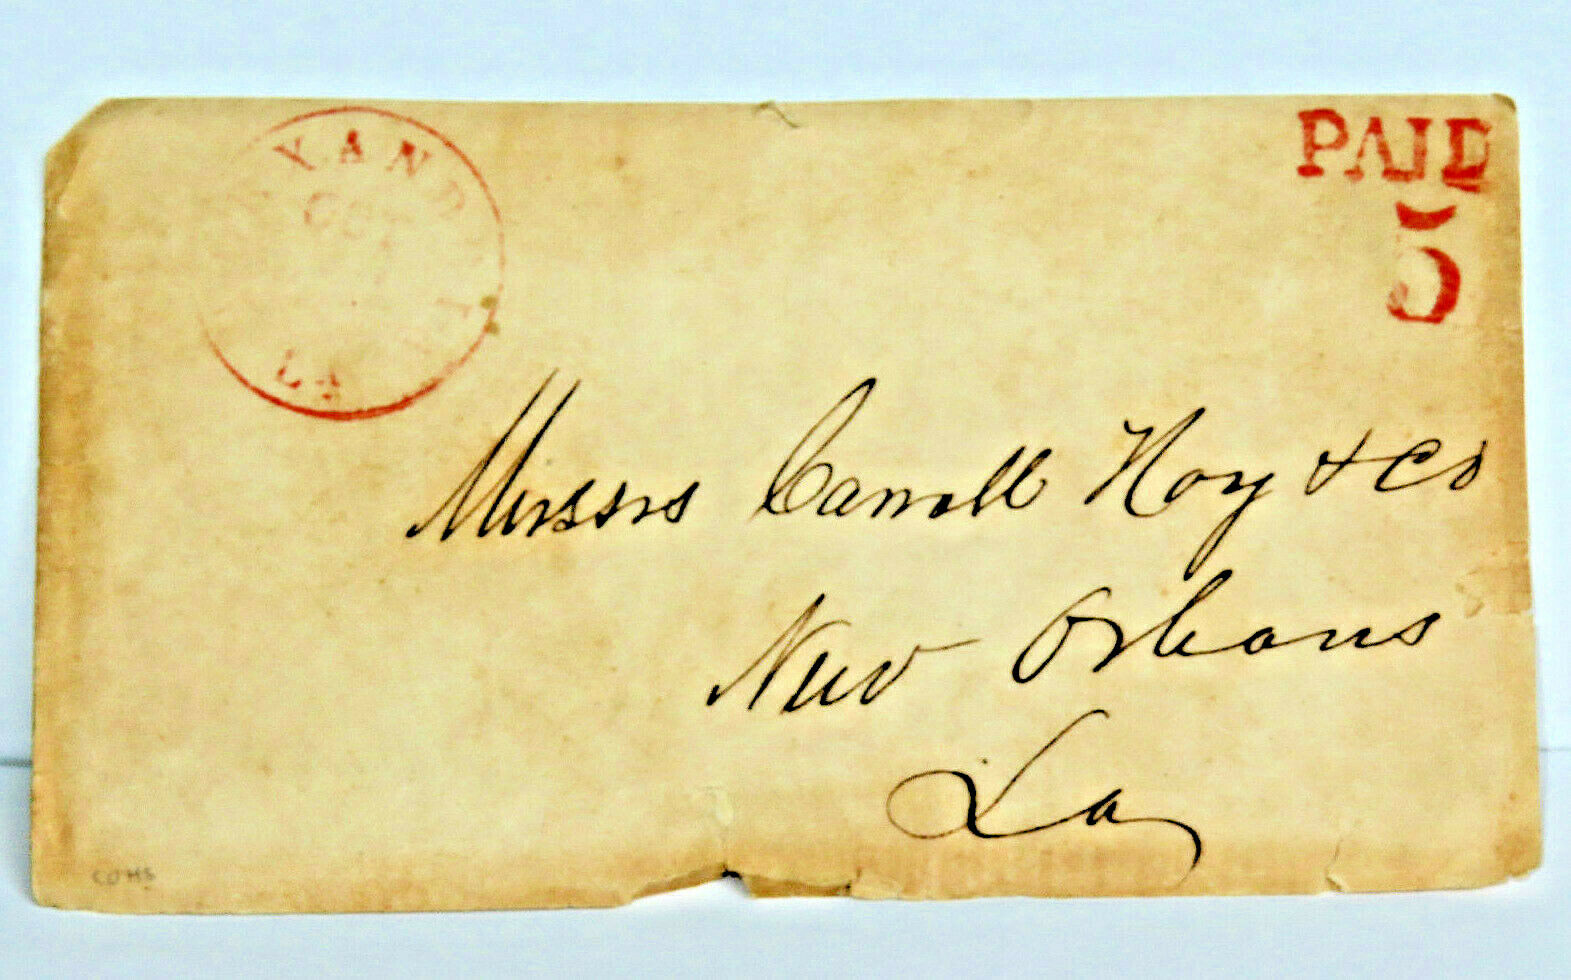 XAND
OCT
LA
PAID
5
Messrs Carroll Hoy & Co
New Orleans
La